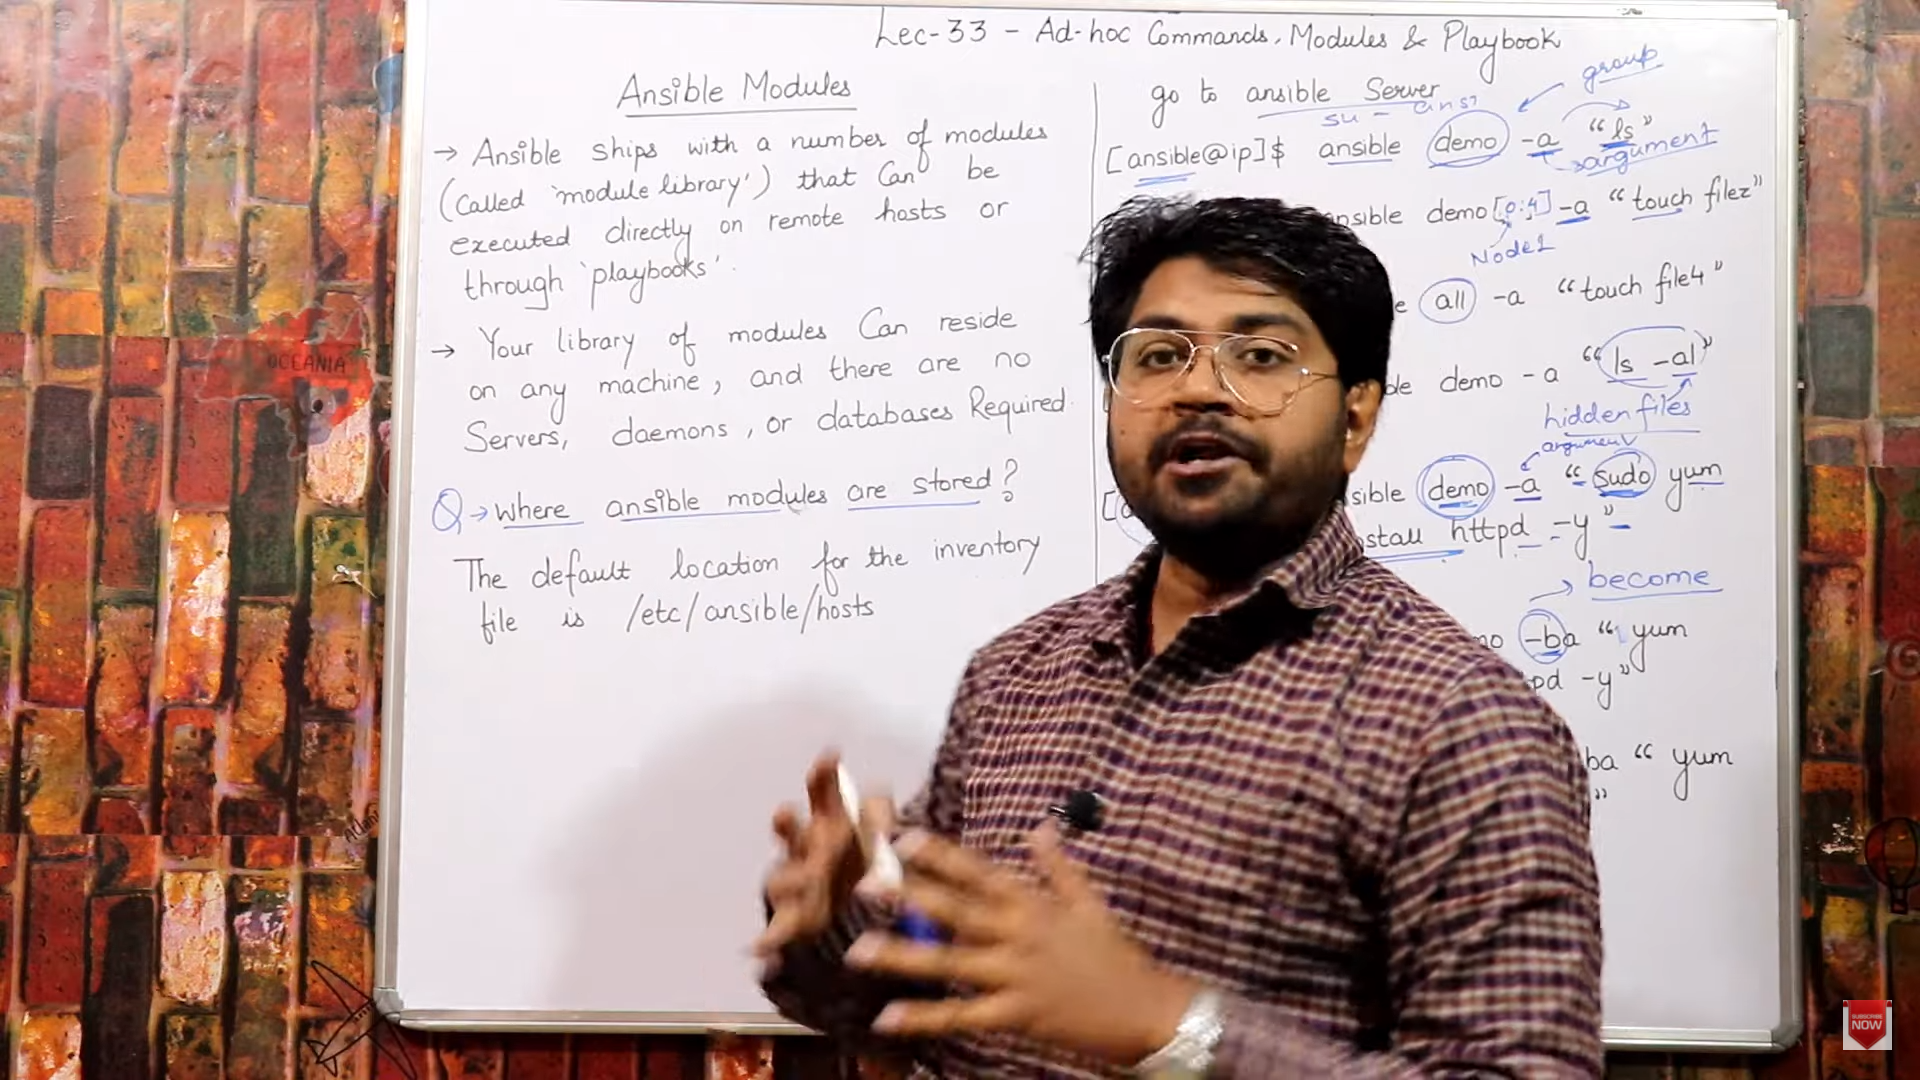 Lec-33 - Ad-hoc Commands, Modules & Playbook
Ansible Modules
→ Ansible ships with a number of modules
(Called 'module library') that Can be
executed directly on remote hosts or
through 'playbooks'.
→ Your library of modules Can reside
on any machine, and there are no
Servers, daemons, or databases Required.
Q → Where ansible modules are stored?
The default location for the inventory
file is /etc/ansible/hosts
go to ansible Server
group
su -
[ansible@ip]$ ansible demo -a "ls"
argument
demo[0:4] -a "touch filez"
Node1
all -a "touch file4"
demo -a "ls -al"
hidden files
argument
demo -a "sudo yum
httpd -y"
become
-ba "yum
-y"
ba "yum
"
OCEANIA
SUBSCRIBE
NOW